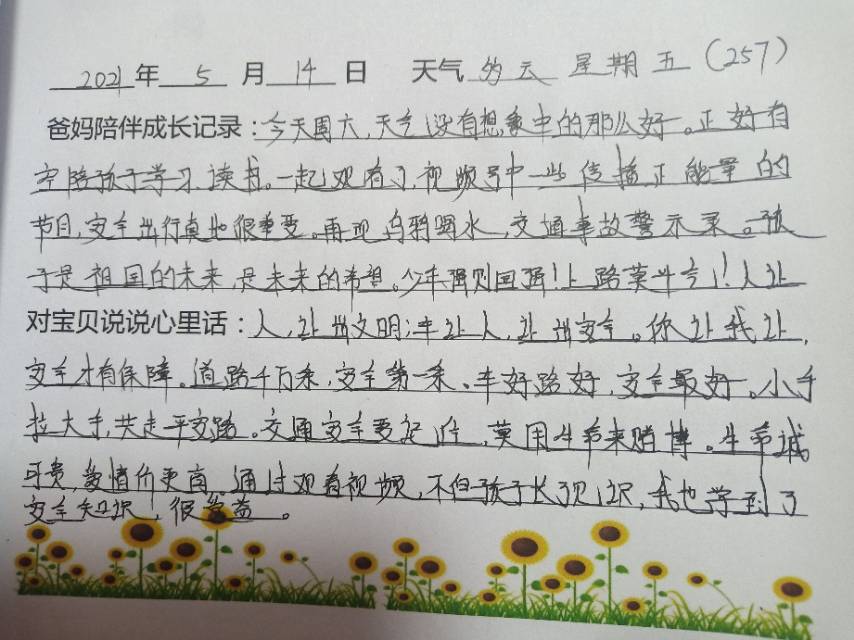 2021年 5 月 14 日 天气 多云 星期五(257)
爸妈陪伴成长记录:今天周六,天气没有想象中的那么好。正好有
空陪孩子学习读书。一起观看了,视频号中一些传播正能量的
节目,安全出行真地很重要。再现乌鸦喝水,交通事故警示录。孩
子是祖国的未来,是未来的希望。少年强则国强!上路莫斗气!人让
对宝贝说说心里话:人,让出文明;车让人,让出安全。你让我让,
安全才有保障。道路千万条,安全第一条、车好路好,安全最好。小手
拉大手,共走平安路。交通安全要记住,莫用生命来赌博。生命诚
可贵,爱情价更高,通过观看视频,不但孩子长了见识,我也学到了
安全知识,很受益。